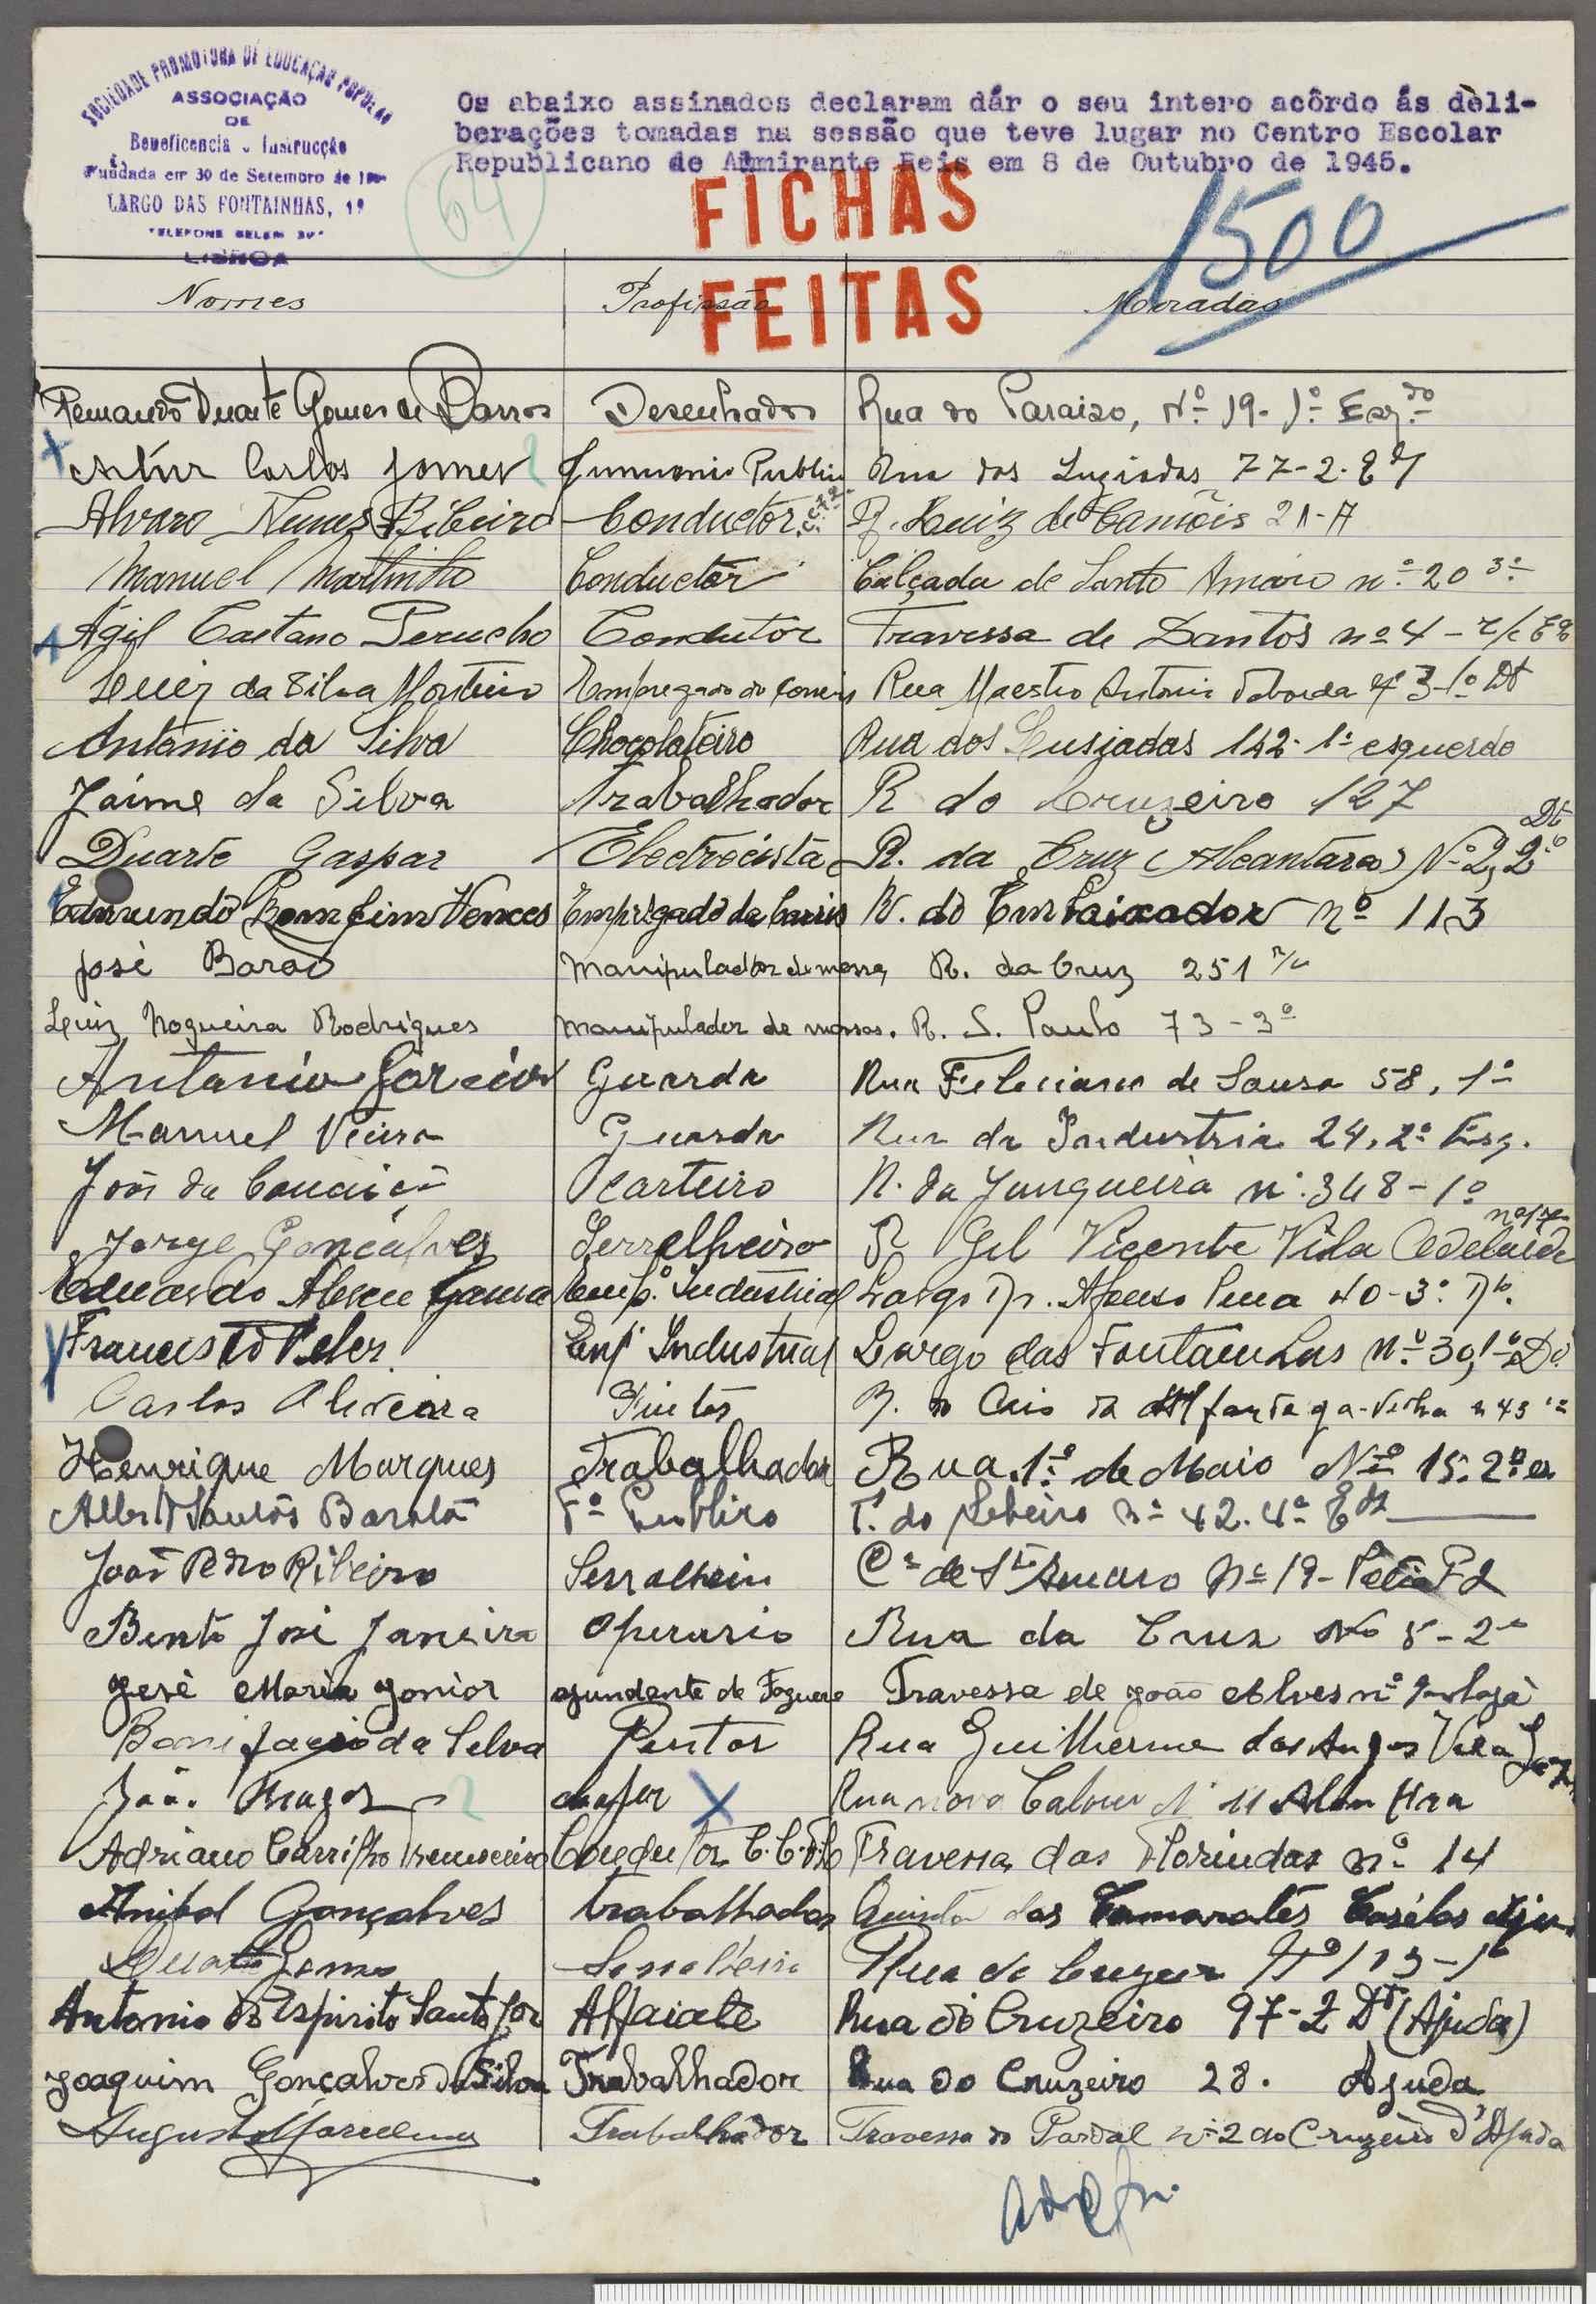 SOCIEDADE PROMOTORA DE EDUCAÇÃO POPULAR
ASSOCIAÇÃO
DE
Beneficencia e Instrucção
Fundada em 30 de Setembro de
LARGO DAS FONTAINHAS, 1º
TELEFONE BELEM
LISBOA
Os abaixo assinados declaram dár o seu intero acôrdo ás dèli-
berações tomadas na sessão que teve lugar no Centro Escolar
Republicano de Almirante Reis em 8 de Outubro de 1945.
64
FICHAS
FEITAS
1500
Nomes Profissão Moradas
Fernando Duarte Gomes de Barros Desenhador Rua do Paraizo, Nº 19-1º Esqdo
Artur Carlos Gomes Publico Rua dos Luziadas 77-2.
Alvaro Nunes Ribeiro Conductor R. Luiz de Camõis 21-A
Manuel Martinho Conductor Calçada de Santo Amaro nº 20 3º
Agil Caetano Perucho Condutor Travessa de Dantos nº 4 - r/c
Luiz da Silva Monteiro Empregado do Comercio Rua Maestro Antonio Taborda nº 3-1º Dt
António da Silva Chocolateiro Rua dos Lusiadas 142-1º esquerdo
Jaime da Silva Trabalhador R do Cruzeiro 127
Duarte Gaspar Electrecista R. da Cruz (Alcantara) Nº 2, 2º Dt
Edmundo Bomfim Vences Empregado da Carris R. do Embaixador nº 113
José Barão Manipulador de massa, R. da Cruz 251 r/c
Luiz Nogueira Rodrigues Manipulador de massas. R. S. Paulo 73-3º
Antonio Garcia Guarda Rua Feliciano de Sousa 58, 1º
Manuel Vieira Guarda Rua da Industria 24, 2º Esq.
João da Conceição Carteiro R. da Junqueira nº 348-1º
Jorge Gonçalves Serrelheiro R Gil Vicente Vila Adelaide nº 17
Eduardo Abreu Gama Empº. Industrial Largo Dr. Afonso Pena 40-3º Dto.
Francisco Peler Emp Industrial Largo das Fontainhas nº 39, 1º Dº
Carlos Oliveira Pintor R. do Cais da Alfandega-Velha n 43 1º
Henrique Marques Trabalhador Rua 1º de Maio Nº 15. 2º
Santos Baratã Fº Publico T. do nº 42. 4º
João Pedro Ribeiro Serralheiro Cª de Sto Amaro Nº 19- Patio
Bento José Janeira Operario Rua da Cruz Nº 5-2º
José Maria Jonior ajundante de Fogueiro Travessa de João Alves nº
Bonifacio da Selva Pentor Rua Guilherme dos Anjos Vila
João chofer Rua nova Calouv Nº 11
Adriano Carrilho Conductor C.C.F.L. Travessa das Florindas nº 14
Anibal Gonçalves trabalhador Quinta dos Tamarates Casélas
Duarte Gomes Rua do Nº 113-1º
Antonio do Espirito Santo Jor Alfaiate Rua do Cruzeiro 97-2 Dt (Ajuda)
Joaquim Gonçalves da Silva Trabalhador Rua do Cruzeiro 28. Ajuda
Augusto Marcelino Trabalhador Travessa do Pardal nº 2 ao Cruzeiro d'Ajuda